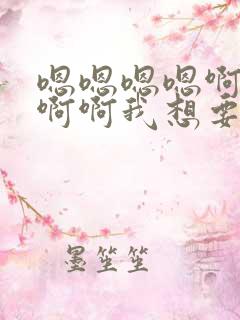 嗯嗯嗯嗯啊
啊啊我想要
墨笙笙